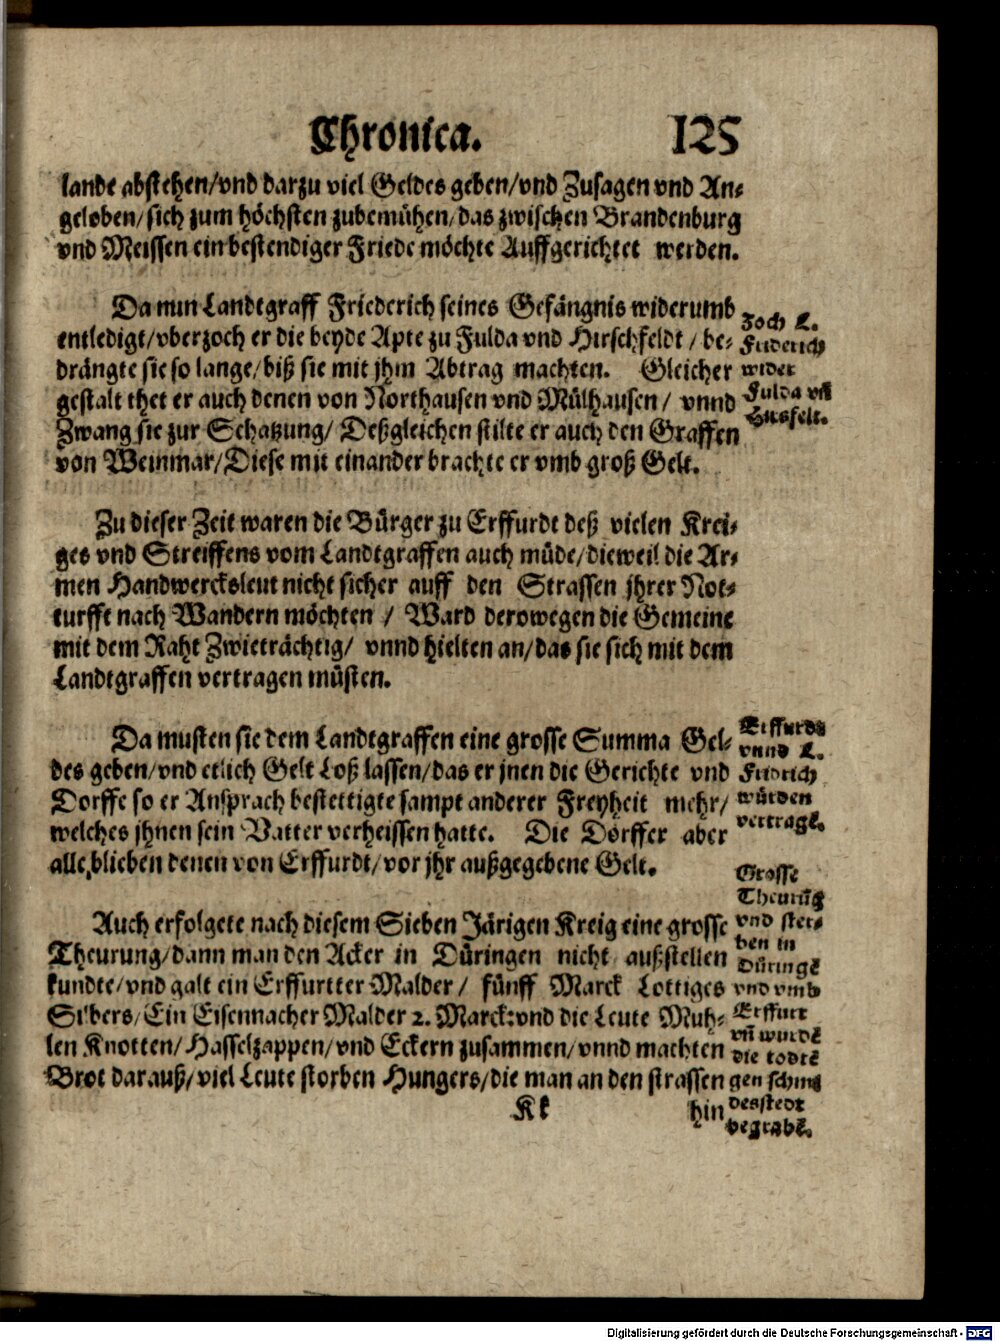 Chronica. 125
lande abstehen/vnd darzu viel Geldes geben/vnd Zusagen vnd An-
geloben/sich zum höchsten zubemühen/das zwischen Brandenburg
vnd Meissen ein bestendiger Friede möchte Auffgerichtet werden.
Da nun Landtgraff Friederich seines Gefängnis widerumb
entledigt/vberzoch er die beyde Apte zu Fulda vnd Hirschfeldt / be-
drängte sie so lange/biß sie mit jhm Abtrag machten. Gleicher
gestalt thet er auch denen von Northausen vnd Mülhausen/ vnnd
Zwang sie zur Schatzung/ Deßgleichen stilte er auch den Graffen
von Weinmar/Diese mit einander brachte er vmb groß Gelt.
Zoch L.
Friderich
wider
Fulda vñ
Hirsfelt.
Zu dieser Zeit waren die Bürger zu Erffurdt deß vielen Krei-
ges vnd Streiffens vom Landtgraffen auch müde/dieweil die Ar-
men Handwercksleut nicht sicher auff den Strassen jhrer Not-
turfft nach Wandern möchten / Ward derowegen die Gemeine
mit dem Raht Zwieträchtig/ vnnd hielten an/das sie sich mit dem
Landtgraffen vertragen müsten.
Da musten sie dem Landtgraffen eine grosse Summa Gel-
des geben/vnd etlich Gelt Loß lassen/das er jnen die Gerichte vnd
Dorffe so er Ansprach bestettigte sampt anderer Freyheit mehr/
welches jhnen sein Vatter verheissen hatte. Die Dörffer aber
alle blieben denen von Erffurdt/vor jhr außgegebene Gelt.
Erffurdt
vnnd L.
Fridrich
würden
vertragē.
Auch erfolgete nach diesem Sieben Järigen Kreig eine grosse
Theurung/dann man den Acker in Düringen nicht außstellen
kundte/vnd galt ein Erffurtter Malder/ fünff Marck Lottiges
Silbers/Ein Eisennacher Malder 2. Marck:vnd die Leute Muh-
len Knotten/Hasselzappen/vnd Eckern zusammen/vnnd machten
Brot darauß/viel Leute storben Hungers/die man an den strassen
Grosse
Theurūg
vnd ster-
ben in
Düringē
vnd vmb
Erffurt
vñ wurdē
die todtē
gen schmi
desstedt
begrabē.
Kk hin
Digitalisierung gefördert durch die Deutsche Forschungsgemeinschaft - DFG